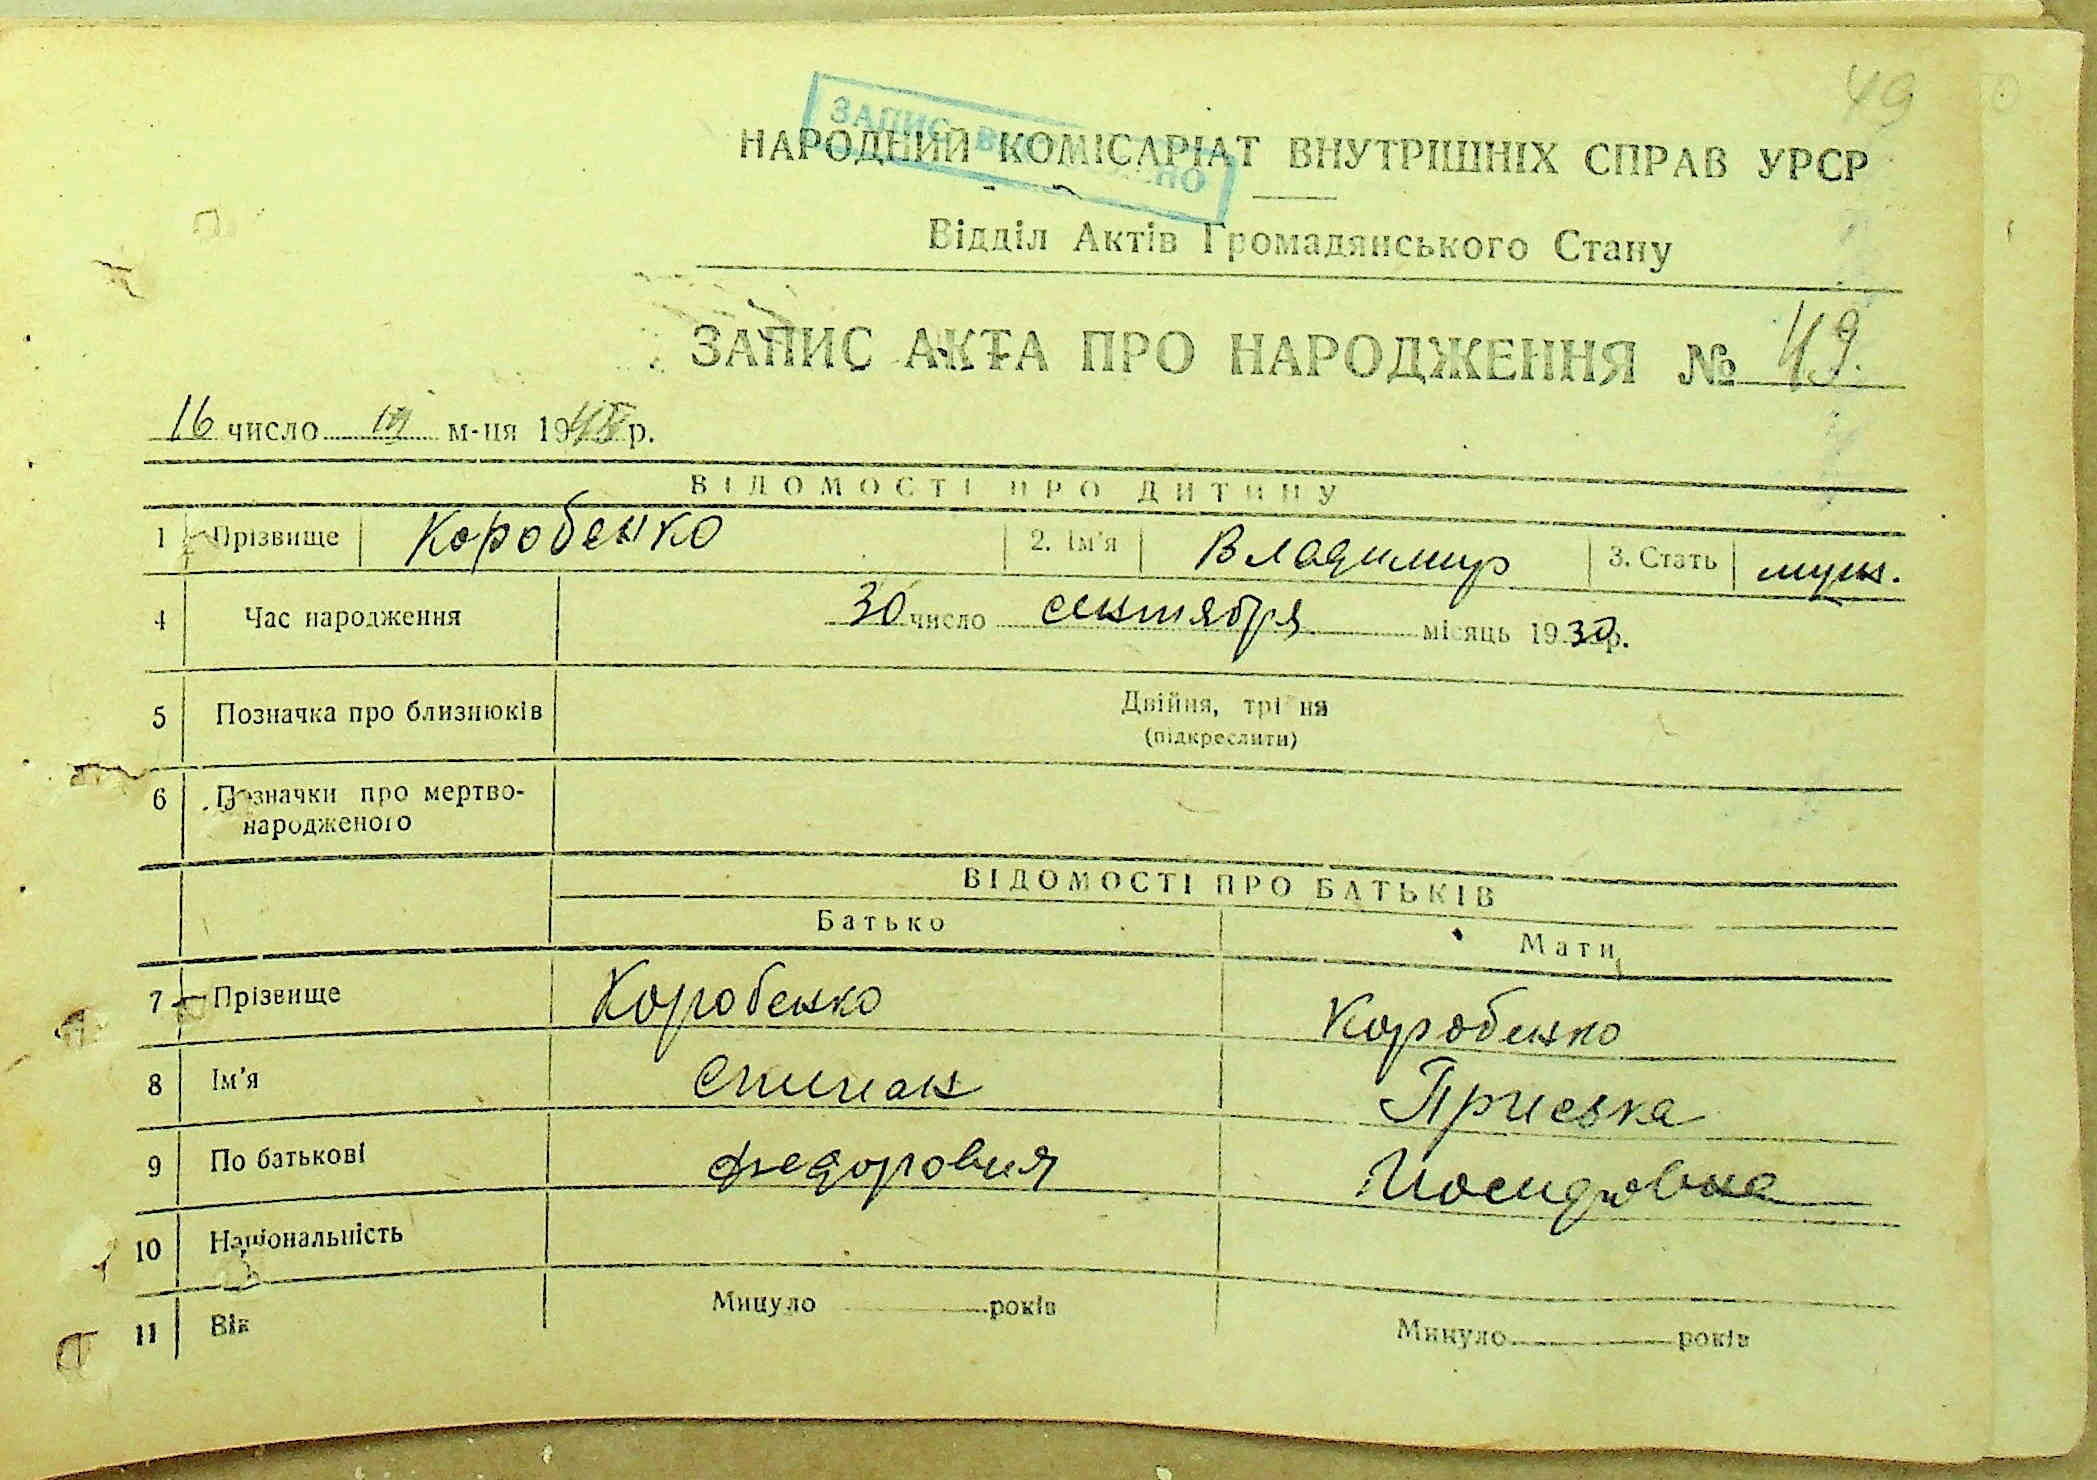 49
ЗАПИС
НАРОДНИЙ КОМІСАРІАТ ВНУТРІШНІХ СПРАВ УРСР
Відділ Актів Громадянського Стану
ЗАПИС АКТА ПРО НАРОДЖЕННЯ № 49.
16 число м-ця 19 р.
ВІДОМОСТІ ПРО ДИТИНУ
1 Прізвище Коробенко 2. Ім'я Владимир 3. Стать муж.
4 Час народження 30 число сентября місяць 1930 р.
5 Позначка про близнюків Двійня, трійня
(підкреслити)
6 Позначки про мертво-
народженого
ВІДОМОСТІ ПРО БАТЬКІВ
Батько Мати
7 Прізвище Коробенко Коробенко
8 Ім'я Приська
9 По батькові Федорович
10 Національність
11 Вік Минуло років Минуло років